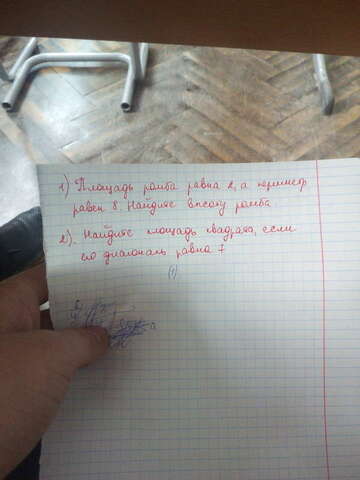 1) Площадь ромба равна 2, а периметр
равен 8. Найдите высоту ромба
2). Найдите площадь квадрата, если
его диагональ равна 7
(1)